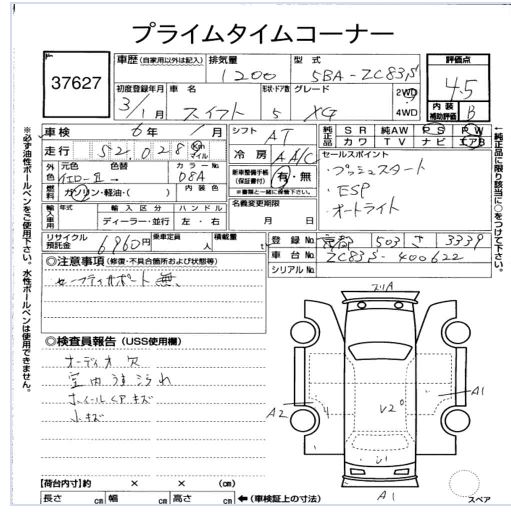 プライムタイムコーナー
37627
車歴 (自家用以外は記入) 排気量 型式 評価点
1200 5BA-ZC83S 4.5
初度登録年月 車名 形状・ドア数 グレード 2WD 4WD 内装補助評価
3/1月 スイフト 5 XG B
車検 6年 1月 シフト AT
純正品 SR 純AW PS PW カワ TV ナビ エアB
走行 52,028 km マイル 冷房 AAC
外色 元色 色替 カラーNo.
08A
燃料 ガソリン・軽油・( ) 内装色
新車整備手帳(保証書付) 有・無
※書類と一緒に保管して下さい。
輸入車用 年式 輸入区分 ハンドル
ディーラー・並行 左・右
名義変更期限
月 日
セールスポイント
・プッシュスタート
・ESP
・オートライト
リサイクル預託金 6960円 乗車定員 人 積載量 t
登録No. 京都 503 さ 3339
車台No. ZC83S-400622
シリアルNo.
◎注意事項 (修復・不具合箇所および状態等)
セーフティサポート無
◎検査員報告 (USS使用欄)
オーディオ欠
室内うす汚れ
ホイールキズ
小キズ
A2
A1
A1
【荷台内寸】約 × × (cm)
長さ cm 幅 cm 高さ cm ←(車検証上の寸法)
スペア
※必ず油性ボールペンをご使用下さい。水性ボールペンは使用できません。
←純正品に限り該当に○をつけて下さい。